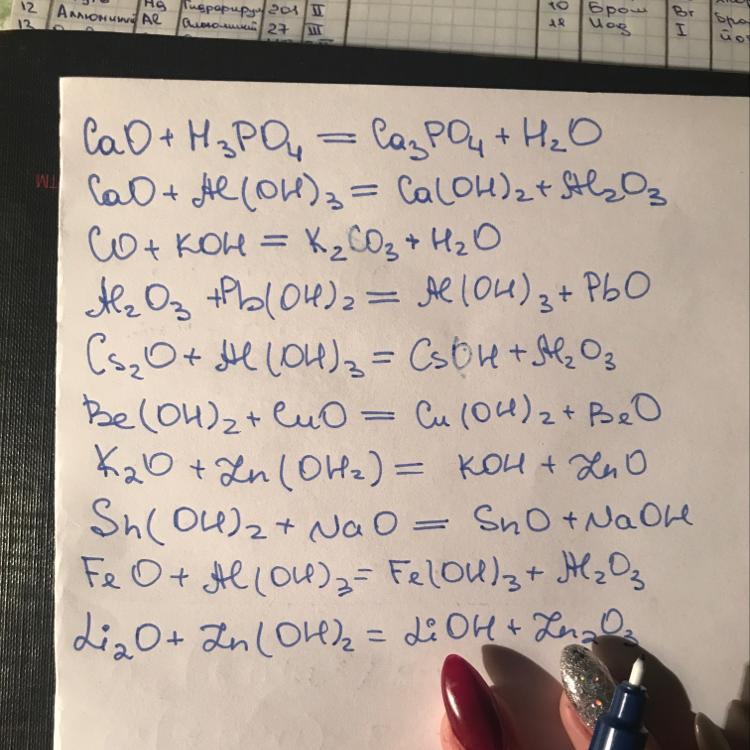 12 Аллюминий Al 27 III
10 Бром Br
18 Иод I
TM
CaO + H₃PO₄ = Ca₃PO₄ + H₂O
CaO + Al(OH)₃ = Ca(OH)₂ + Al₂O₃
CO + KOH = K₂CO₃ + H₂O
Al₂O₃ + Pb(OH)₂ = Al(OH)₃ + PbO
Cs₂O + Al(OH)₃ = CsOH + Al₂O₃
Be(OH)₂ + CuO = Cu(OH)₂ + BeO
K₂O + Zn(OH₂) = KOH + ZnO
Sn(OH)₂ + NaO = SnO + NaOH
FeO + Al(OH)₃ = Fe(OH)₃ + Al₂O₃
Li₂O + Zn(OH)₂ = LiOH + Zn₂O₃